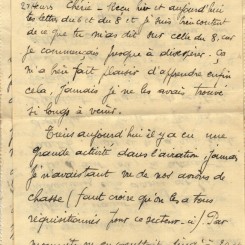 27 Mars Chérie - Reçu hier et aujourd'hui
les lettres du 6 et du 8 et je suis bien content
de ce que tu m'as dit sur celle du 8, car
je commençais presque à désespérer. Ça
m'a bien fait plaisir d'apprendre enfin
cela, jamais je ne les avais trouvé
si longs à venir.
Tiens aujourd'hui il y a eu une
grande activité dans l'aviation, jamais
je n'avais tant vu de nos avions de
chasse (faut croire qu'on les a tous
réquisitionnés pour ce secteur-ci) Par